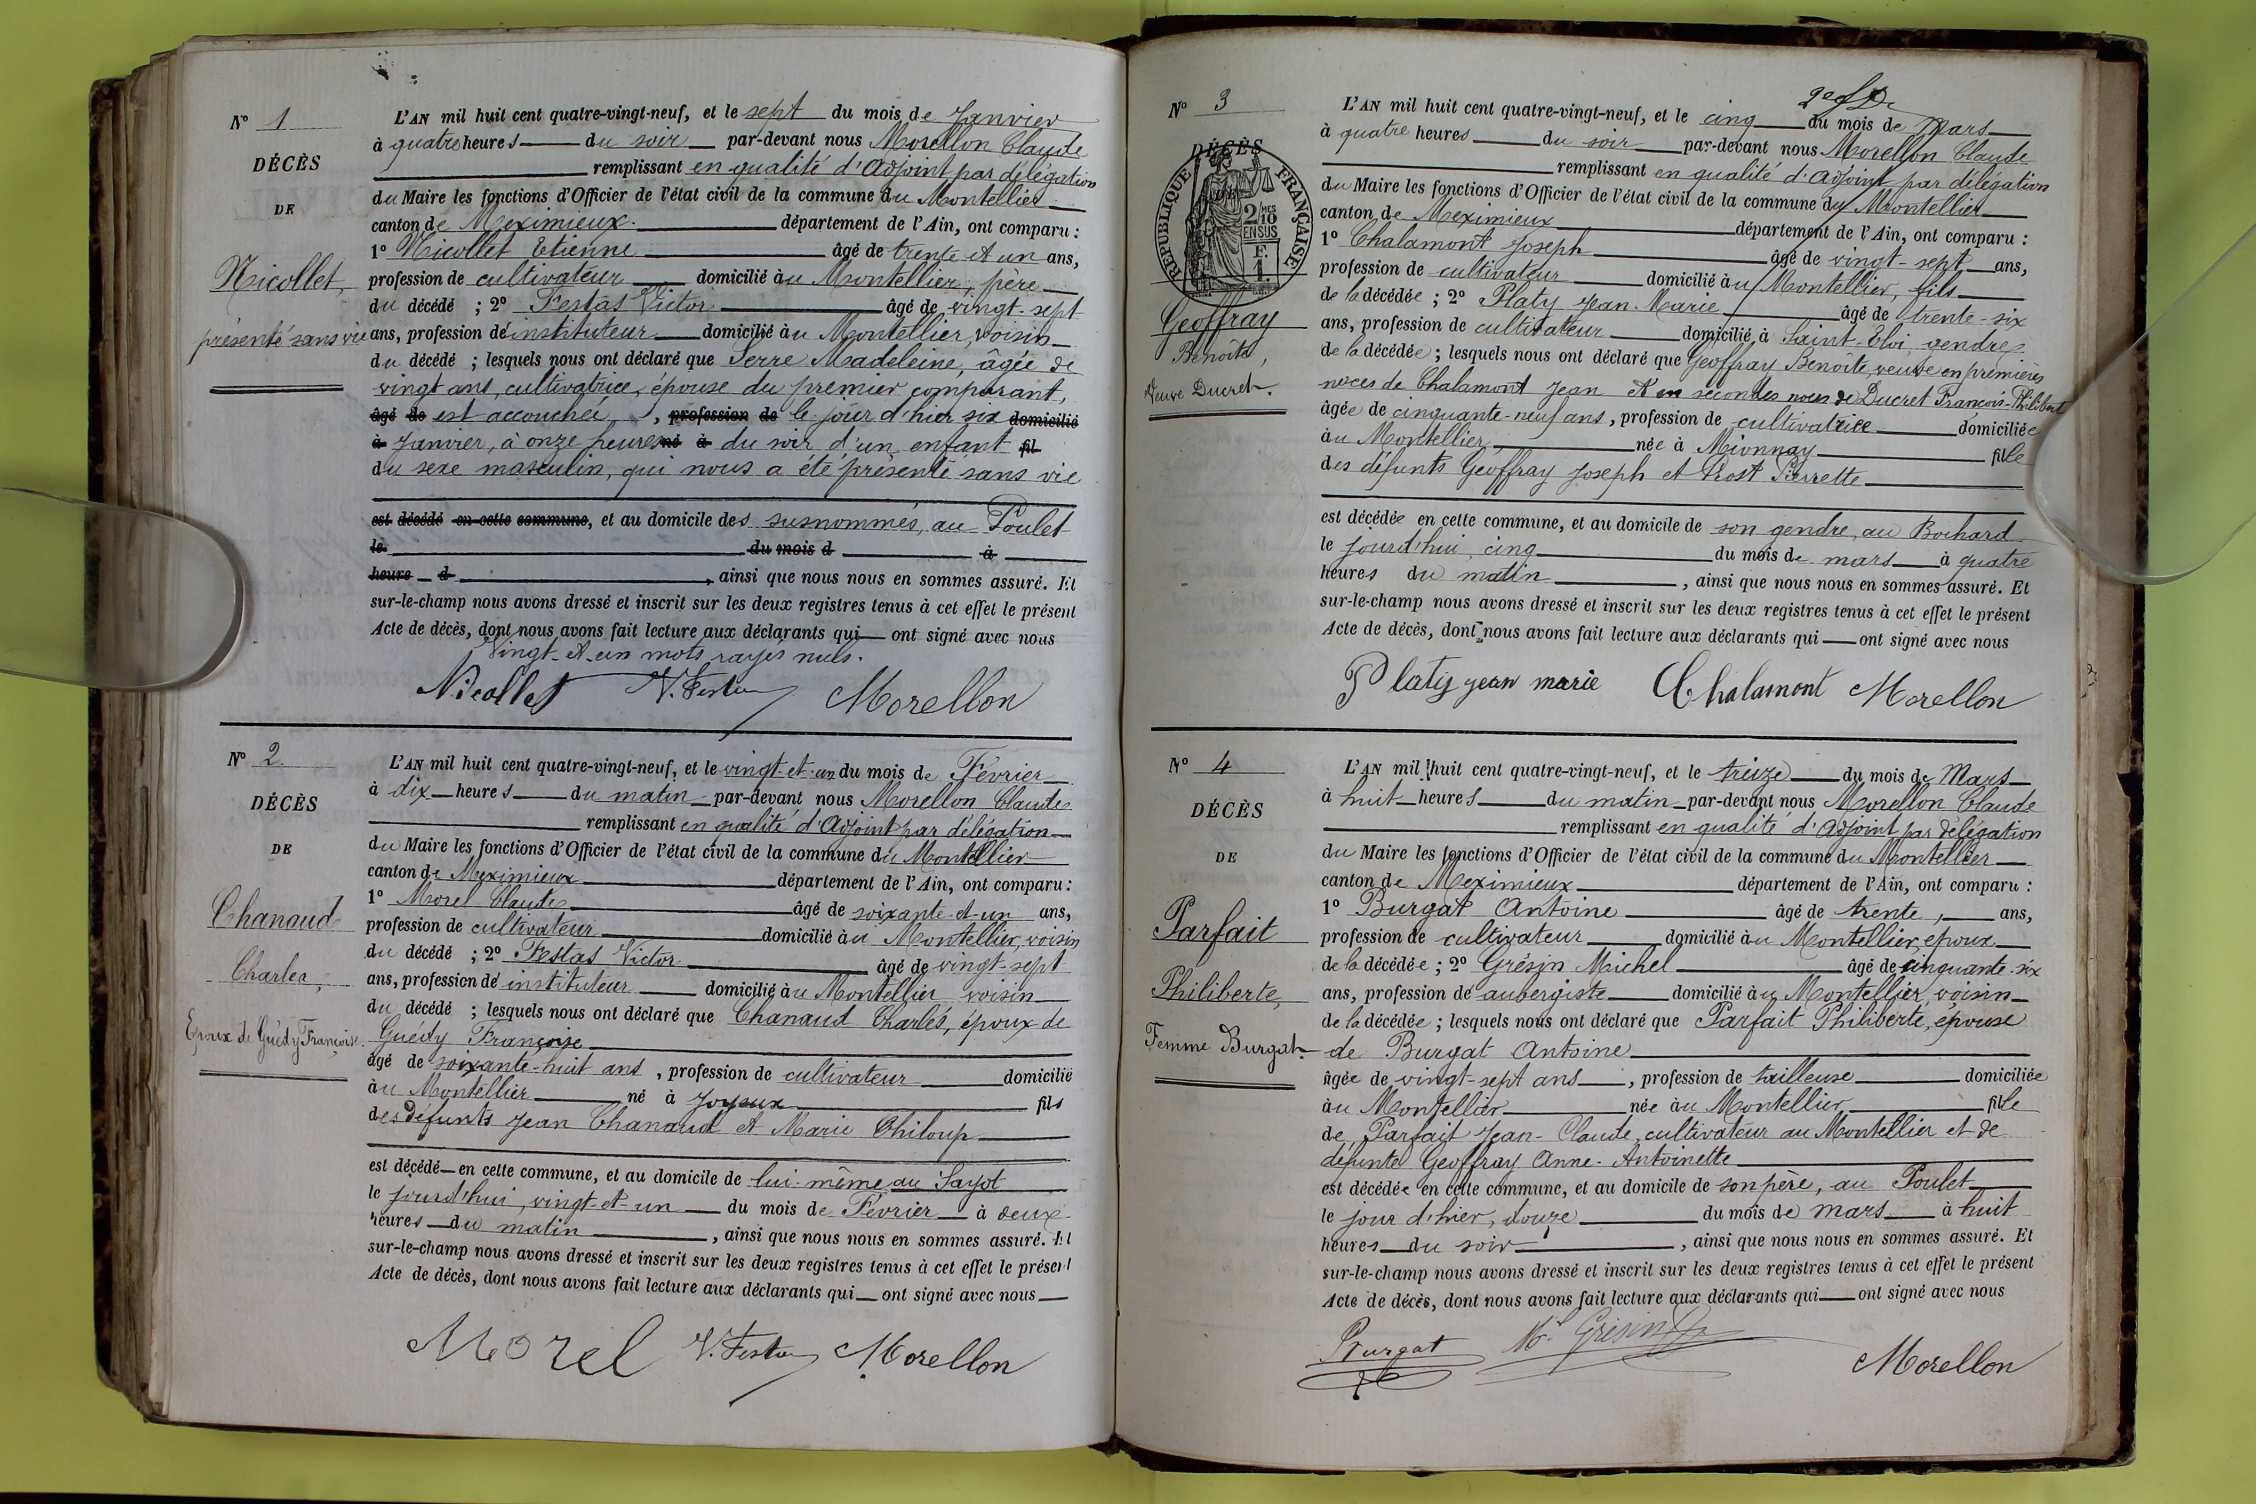 N° 1
DÉCÈS
DE
Nicollet,
présenté sans vie
L'AN mil huit cent quatre-vingt-neuf, et le sept du mois de Janvier
à quatre heures du soir par-devant nous Morellon Claude
remplissant en qualité d'Adjoint par délégation
du Maire les fonctions d'Officier de l'état civil de la commune du Montellier
canton de Meximieux. département de l'Ain, ont comparu :
1° Nicollet Etienne âgé de trente et un ans,
profession de cultivateur domicilié au Montellier, père
du décédé ; 2° Festas Victor âgé de vingt-sept
ans, profession de instituteur domicilié au Montellier, voisin
du décédé ; lesquels nous ont déclaré que Serre Madeleine, âgée de
vingt ans, cultivatrice, épouse du premier comparant,
âgé de est accouchée, , profession de le jour d'hier six domicilié
à Janvier, à onze heures né à du soir d'un enfant fil
du sexe masculin, qui nous a été présenté sans vie
est décédé en cette commune, et au domicile des susnommés, au Poulet
le du mois d à
heure d , ainsi que nous nous en sommes assuré. Et
sur-le-champ nous avons dressé et inscrit sur les deux registres tenus à cet effet le présent
Acte de décès, dont nous avons fait lecture aux déclarants qui ont signé avec nous
Vingt-et-un mots rayés nuls.
Nicollet V. Festas Morellon
N° 2
DÉCÈS
DE
Chanaud
Charles,
Epoux de Guédy Françoise.
L'AN mil huit cent quatre-vingt-neuf, et le vingt-et-un du mois de Février
à dix heures du matin par-devant nous Morellon Claude
remplissant en qualité d'Adjoint par délégation
du Maire les fonctions d'Officier de l'état civil de la commune du Montellier
canton de Meximieux département de l'Ain, ont comparu :
1° Morel Claude âgé de soixante-et-un ans,
profession de cultivateur domicilié au Montellier, voisin
du décédé ; 2° Festas Victor âgé de vingt-sept
ans, profession de instituteur domicilié au Montellier voisin
du décédé ; lesquels nous ont déclaré que Chanaud Charles, époux de
Guédy Françoise
âgé de soixante-huit ans , profession de cultivateur domicilié
au Montellier né à Joyeux fils
des défunts Jean Chanaud et Marie Chiloup
est décédé en cette commune, et au domicile de lui-même au Sayot
le jourd'hui, vingt-et-un du mois de Février à deux
heures du matin , ainsi que nous nous en sommes assuré. Et
sur-le-champ nous avons dressé et inscrit sur les deux registres tenus à cet effet le présent
Acte de décès, dont nous avons fait lecture aux déclarants qui ont signé avec nous
Morel V. Festas Morellon
N° 3
DÉCÈS
RÉPUBLIQUE FRANÇAISE
2/10 MES
EN SUS
F.
1.
Geoffray
Benoîte,
Veuve Ducret.
L'AN mil huit cent quatre-vingt-neuf, et le cinq du mois de Mars
à quatre heures du soir par-devant nous Morellon Claude
remplissant en qualité d'Adjoint par délégation
du Maire les fonctions d'Officier de l'état civil de la commune du Montellier
canton de Meximieux département de l'Ain, ont comparu :
1° Chalamont Joseph âgé de vingt-sept ans,
profession de cultivateur domicilié au Montellier, fils
de la décédée ; 2° Platy Jean-Marie âgé de trente-six
ans, profession de cultivateur domicilié à Saint-Eloi, gendre
de la décédée ; lesquels nous ont déclaré que Geoffray Benoîte, veuve en premières
noces de Chalamont Jean et en secondes noces de Ducret François-Philibert
âgée de cinquante-neuf ans, profession de cultivatrice domiciliée
au Montellier née à Mionnay fille
des défunts Geoffray Joseph et Prost Pierrette
est décédée en cette commune, et au domicile de son gendre, au Bochard
le jourd'hui cinq du mois de mars à quatre
heures du matin , ainsi que nous nous en sommes assuré. Et
sur-le-champ nous avons dressé et inscrit sur les deux registres tenus à cet effet le présent
Acte de décès, dont nous avons fait lecture aux déclarants qui ont signé avec nous
Platy jean marie Chalamont Morellon
N° 4
DÉCÈS
DE
Parfait
Philiberte,
Femme Burgat
L'AN mil huit cent quatre-vingt-neuf, et le treize du mois de Mars
à huit heures du matin par-devant nous Morellon Claude
remplissant en qualité d'Adjoint par délégation
du Maire les fonctions d'Officier de l'état civil de la commune du Montellier
canton de Meximieux département de l'Ain, ont comparu :
1° Burgat Antoine âgé de trente, ans,
profession de cultivateur domicilié au Montellier, époux
de la décédée ; 2° Grésin Michel âgé de cinquante-six
ans, profession de aubergiste domicilié au Montellier, voisin
de la décédée ; lesquels nous ont déclaré que Parfait Philiberte, épouse
de Burgat Antoine
âgée de vingt-sept ans , profession de tailleuse domiciliée
au Montellier née au Montellier fille
de Parfait Jean-Claude, cultivateur au Montellier et de
défunte Geoffray Anne-Antoinette
est décédée en cette commune, et au domicile de son père, au Poulet
le jour d'hier, douze du mois de mars à huit
heures du soir , ainsi que nous nous en sommes assuré. Et
sur-le-champ nous avons dressé et inscrit sur les deux registres tenus à cet effet le présent
Acte de décès, dont nous avons fait lecture aux déclarants qui ont signé avec nous
Burgat Mel Grésin Morellon